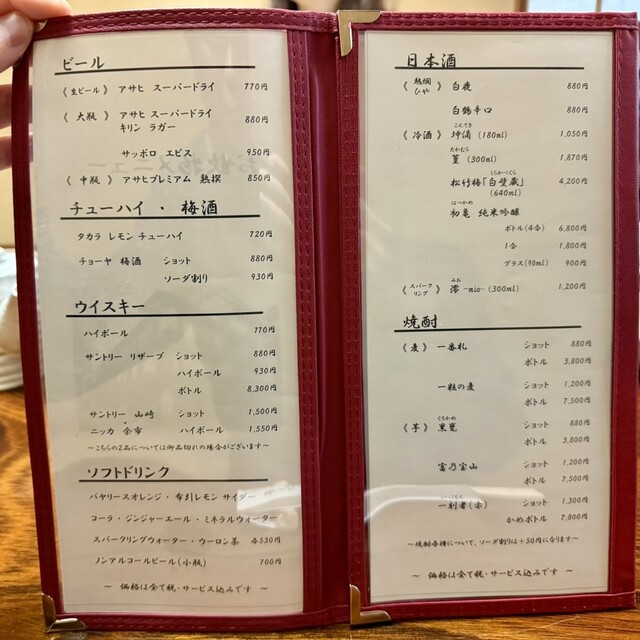 ビール
《 生ビール 》 アサヒ スーパードライ 770円
《 大瓶 》 アサヒ スーパードライ
キリン ラガー 880円
サッポロ エビス 950円
《 中瓶 》 アサヒプレミアム 熟撰 850円
チューハイ ・ 梅酒
タカラ レモン チューハイ 720円
チョーヤ 梅酒 ショット 880円
ソーダ割り 930円
ウイスキー
ハイボール 770円
サントリー リザーブ ショット 880円
ハイボール 930円
ボトル 8,300円
サントリー 山崎 ショット 1,500円
ニッカ 余市 ハイボール 1,550円
〜こちらの2品については御品切れの場合がございます〜
ソフトドリンク
バヤリースオレンジ・布引レモン サイダー
コーラ・ジンジャーエール・ミネラルウォーター
スパークリングウォーター・ウーロン茶 各530円
ノンアルコールビール(小瓶) 700円
〜 価格は全て税・サービス込みです 〜
日本酒
《 熱燗 ひや 》 白鹿 880円
白鶴辛口 880円
こんてき
《 冷酒 》 坤滴 (180ml) 1,050円
たかむら
篁 (300ml) 1,870円
しらかべくら
松竹梅「白壁蔵」 4,200円
(640ml)
はつかめ
初亀 純米吟醸
ボトル(4合) 6,800円
1合 1,800円
グラス(90ml) 900円
みお
《 スパークリング 》 澪 -mio- (300ml) 1,200円
焼酎
《 麦 》 一番札 ショット 880円
ボトル 3,800円
一粒の麦 ショット 1,200円
ボトル 7,500円
くろかめ
《 芋 》 黒甕 ショット 880円
ボトル 3,800円
富乃宝山 ショット 1,200円
ボトル 7,500円
いっこもん
一刻者(赤) ショット 1,300円
かめボトル 7,800円
〜焼酎各種について、ソーダ割りは+50円になります〜
〜 価格は全て税・サービス込みです 〜